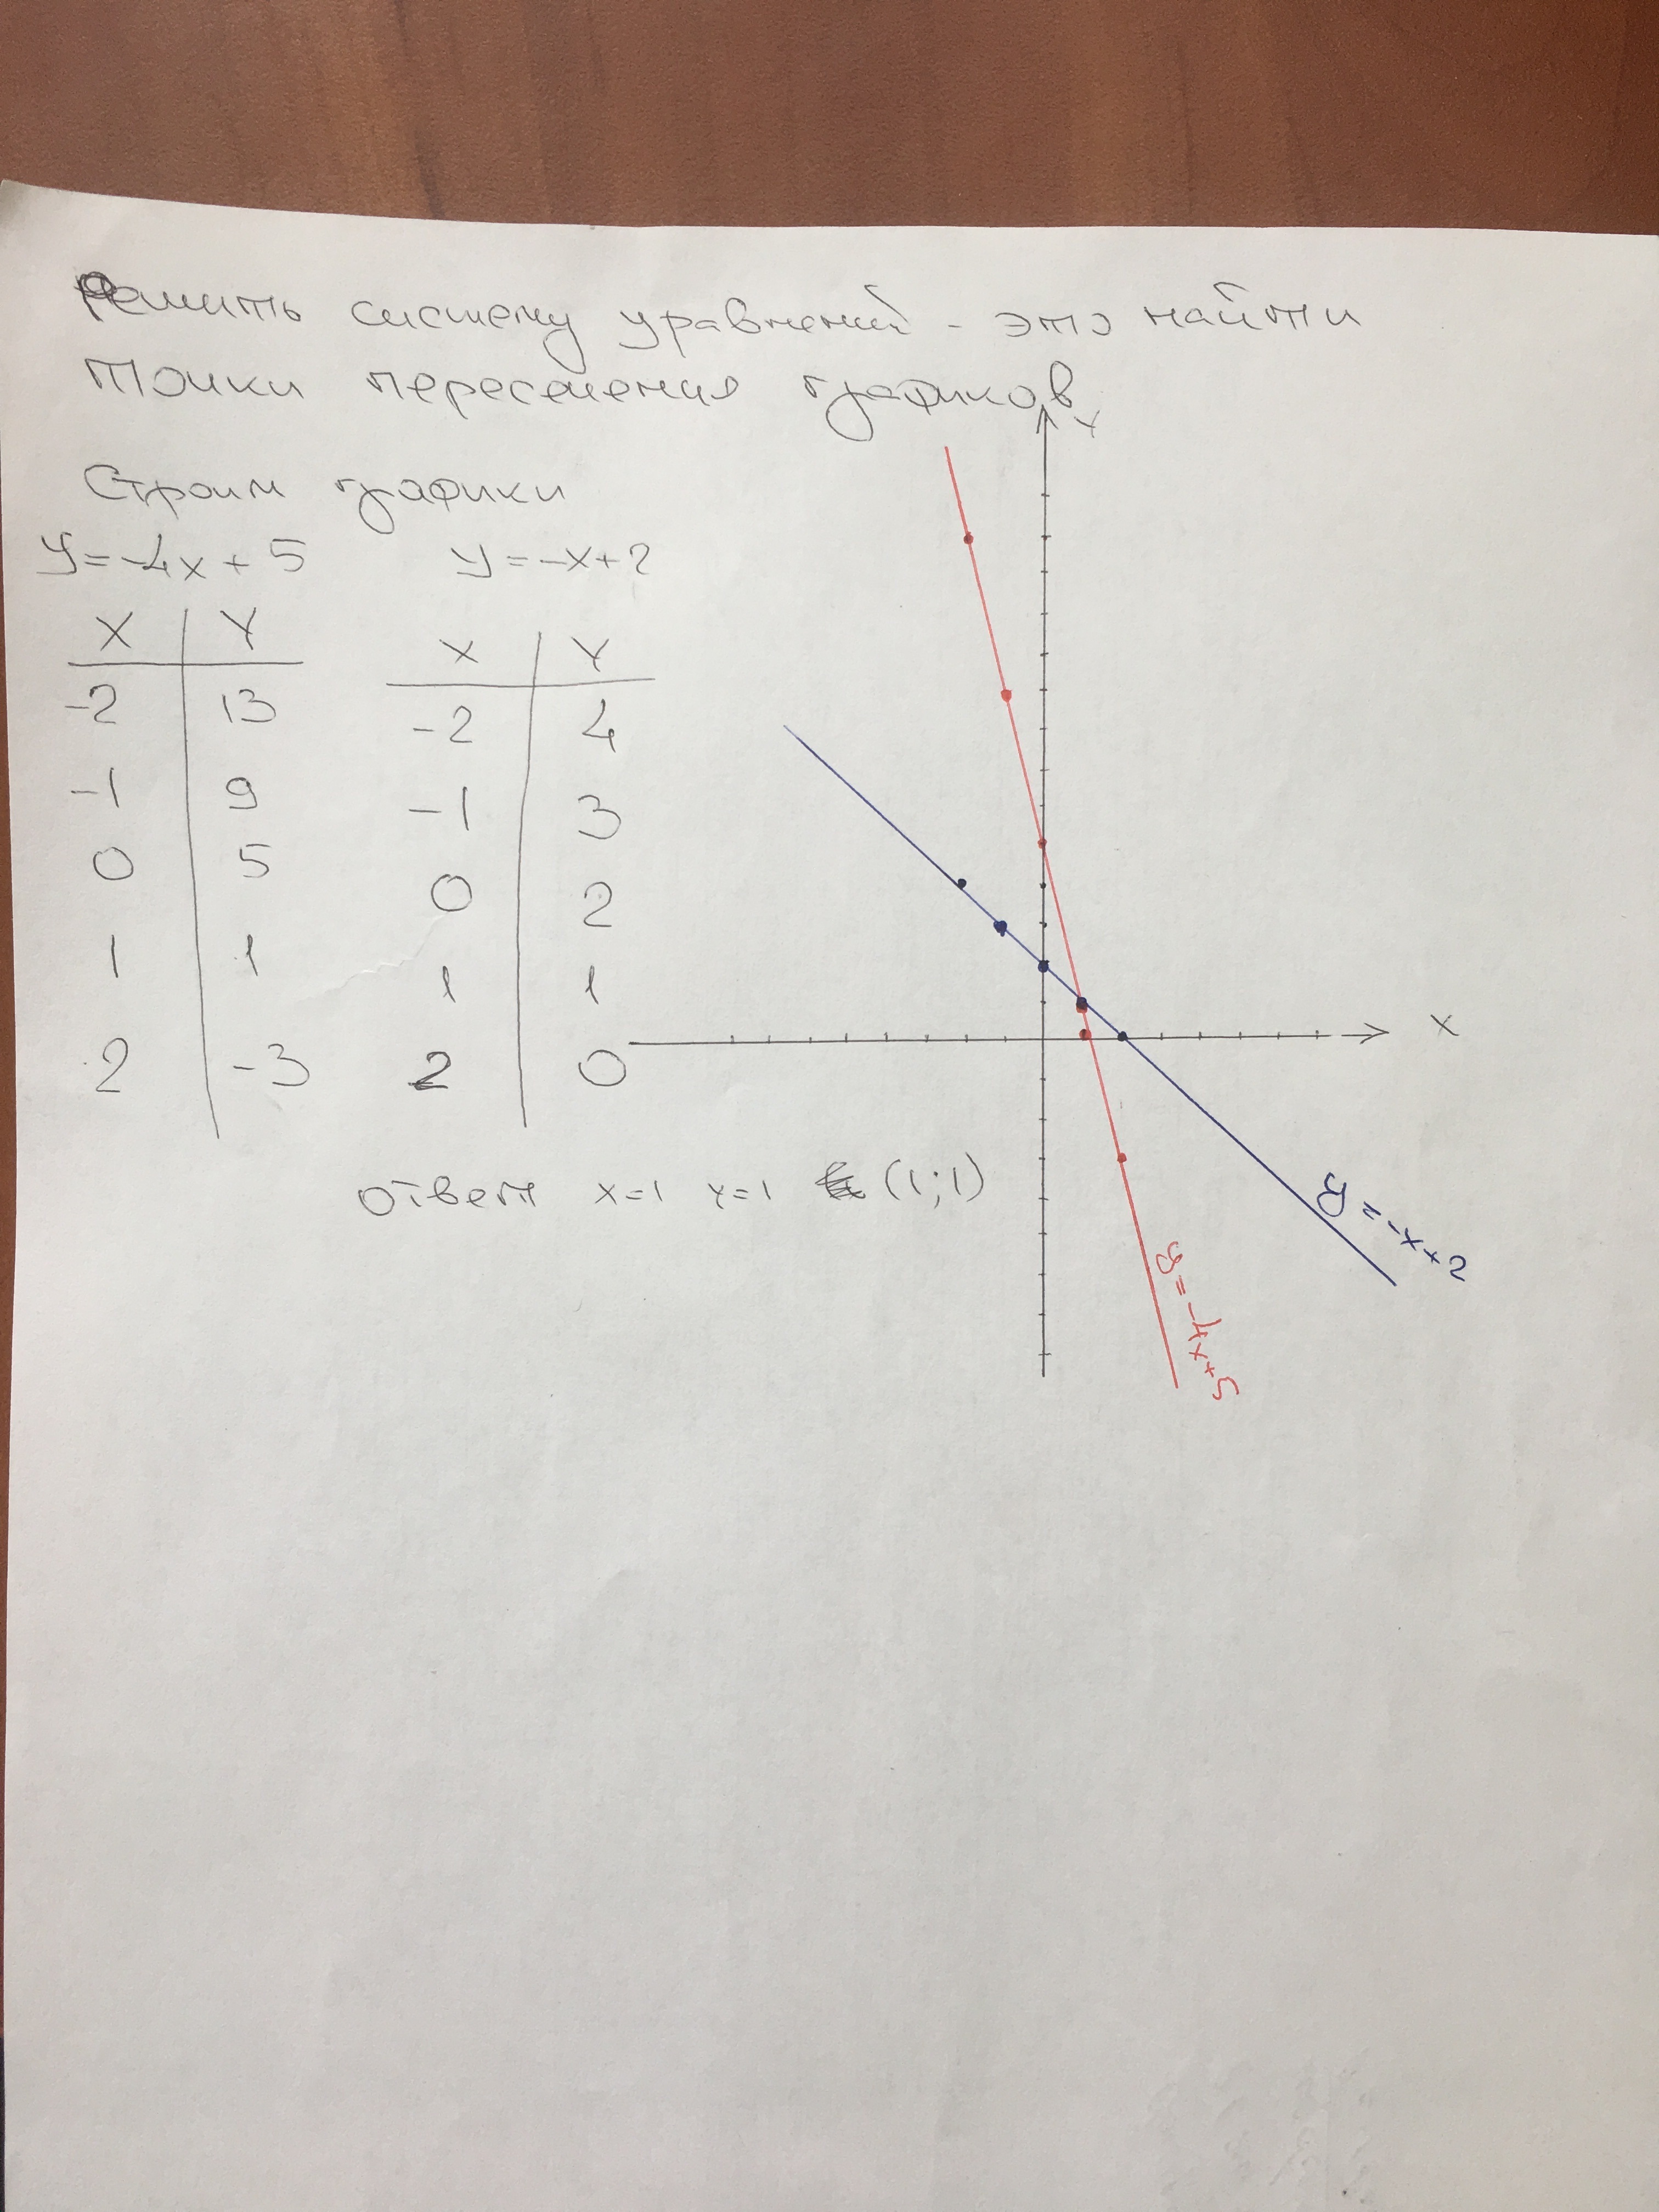 Решить систему уравнений - это найти
точки пересечения графиков
Строим графики
y=-4x+5 y=-x+2
X Y X Y
-2 13 -2 4
-1 9 -1 3
0 5 0 2
1 1 1 1
2 -3 2 0
ответ x=1 y=1 (1;1)
Y
X
y=-x+2
y=-4x+5